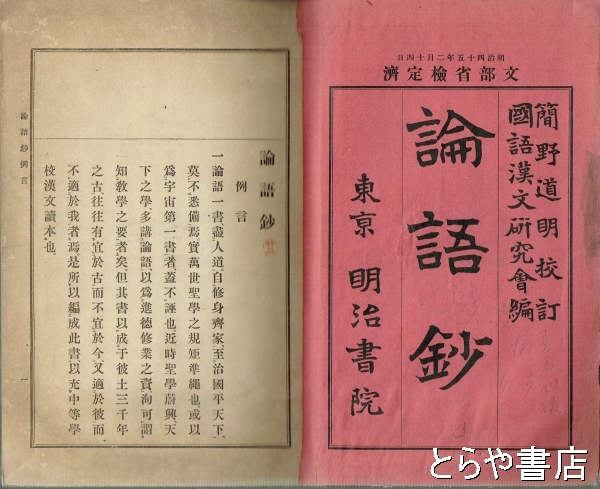 日四十月二年五十四治明
濟定檢省部文
簡野道明校訂
國語漢文研究會編
論語鈔
東京 明治書院
論語鈔
例言
一論語一書、盡人道、自修身齊家、至治國平天下、
莫不悉備焉、實萬世聖學之規矩準繩也、或以
爲宇宙第一書者、蓋不誣也、近時聖學蔚興、天
下之學、多講論語、以爲進德修業之資、洵可謂
知敎學之要者矣、但其書以成于彼土三千年
之古、往往有宜於古而不宜於今、又適於彼而
不適於我者焉、是所以編成此書、以充中等學
校漢文讀本也、
論語鈔例言
一
とらや書店